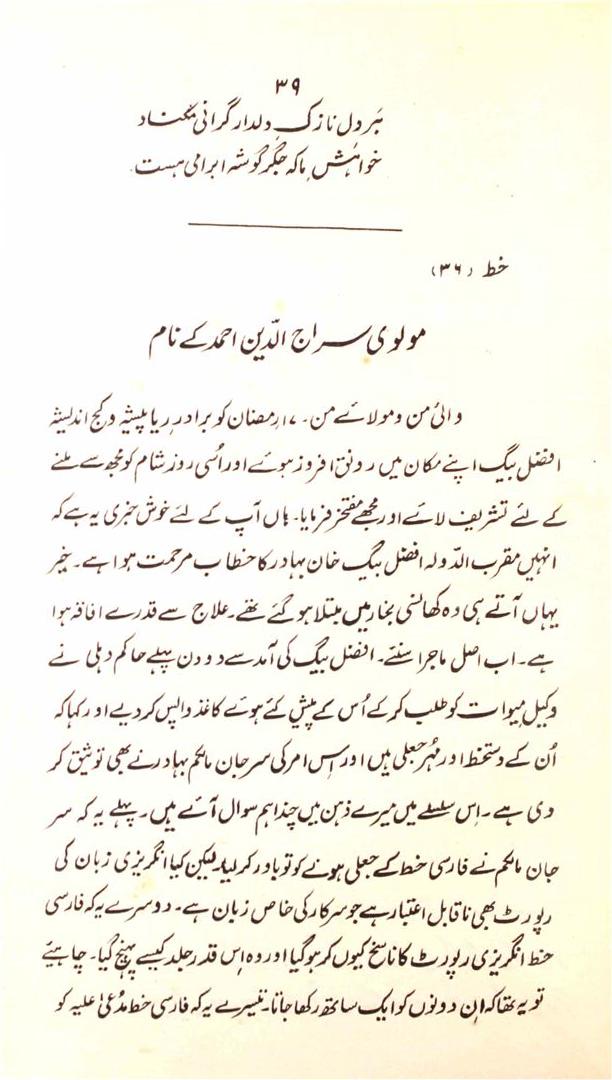 ۳۹
بَر دلِ نازکِ دلدار گرانی مکناد
خواہشِ ما کہ جگر گوشہ ابرامی ہست
خط (۳۶)
مولوی سراج الدّین احمد کے نام
والیٔ من و مولائے من۔ ۱۷ رمضان کو برادرِ ریا پیشہ و کج اندیشہ
افضل بیگ اپنے مکان میں رونق افروز ہوئے اور اُسی روز شام کو مجھ سے ملنے
کے لئے تشریف لائے اور مجھے مفتخر فرمایا۔ ہاں آپ کے لئے خوش خبری یہ ہے کہ
انہیں مقرب الدّولہ افضل بیگ خان بہادر کا خطاب مرحمت ہوا ہے۔ خیر
یہاں آتے ہی وہ کھانسی بخار میں مبتلا ہو گئے تھے۔ علاج سے قدرے افاقہ ہوا
ہے۔ اب اصل ماجرا سنئے۔ افضل بیگ کی آمد سے دو دن پہلے حاکم دہلی نے
وکیل میوات کو طلب کر کے اُس کے پیش کئے ہوئے کاغذ واپس کر دیے اور کہا کہ
اُن کے دستخط اور مُہر جعلی ہیں اور اِس امر کی سر جان مالکم بہادر نے بھی توثیق کر
دی ہے۔ اِس سلسلے میں میرے ذہن میں چند اہم سوال آئے ہیں۔ پہلے یہ کہ سر
جان مالکم نے فارسی خط کے جعلی ہونے کو تو باور کر لیا۔ لیکن کیا انگریزی زبان کی
رپورٹ بھی ناقابل اعتبار ہے جو سرکار کی خاص زبان ہے۔ دوسرے یہ کہ فارسی
خط انگریزی رپورٹ کا ناسخ کیوں کر ہو گیا اور وہ اِس قدر جلد کیسے پہنچ گیا۔ چاہیئے
تو یہ تھا کہ اِن دونوں کو ایک ساتھ رکھا جاتا۔ تیسرے یہ کہ فارسی خط مدّعیٰ علیہ کو